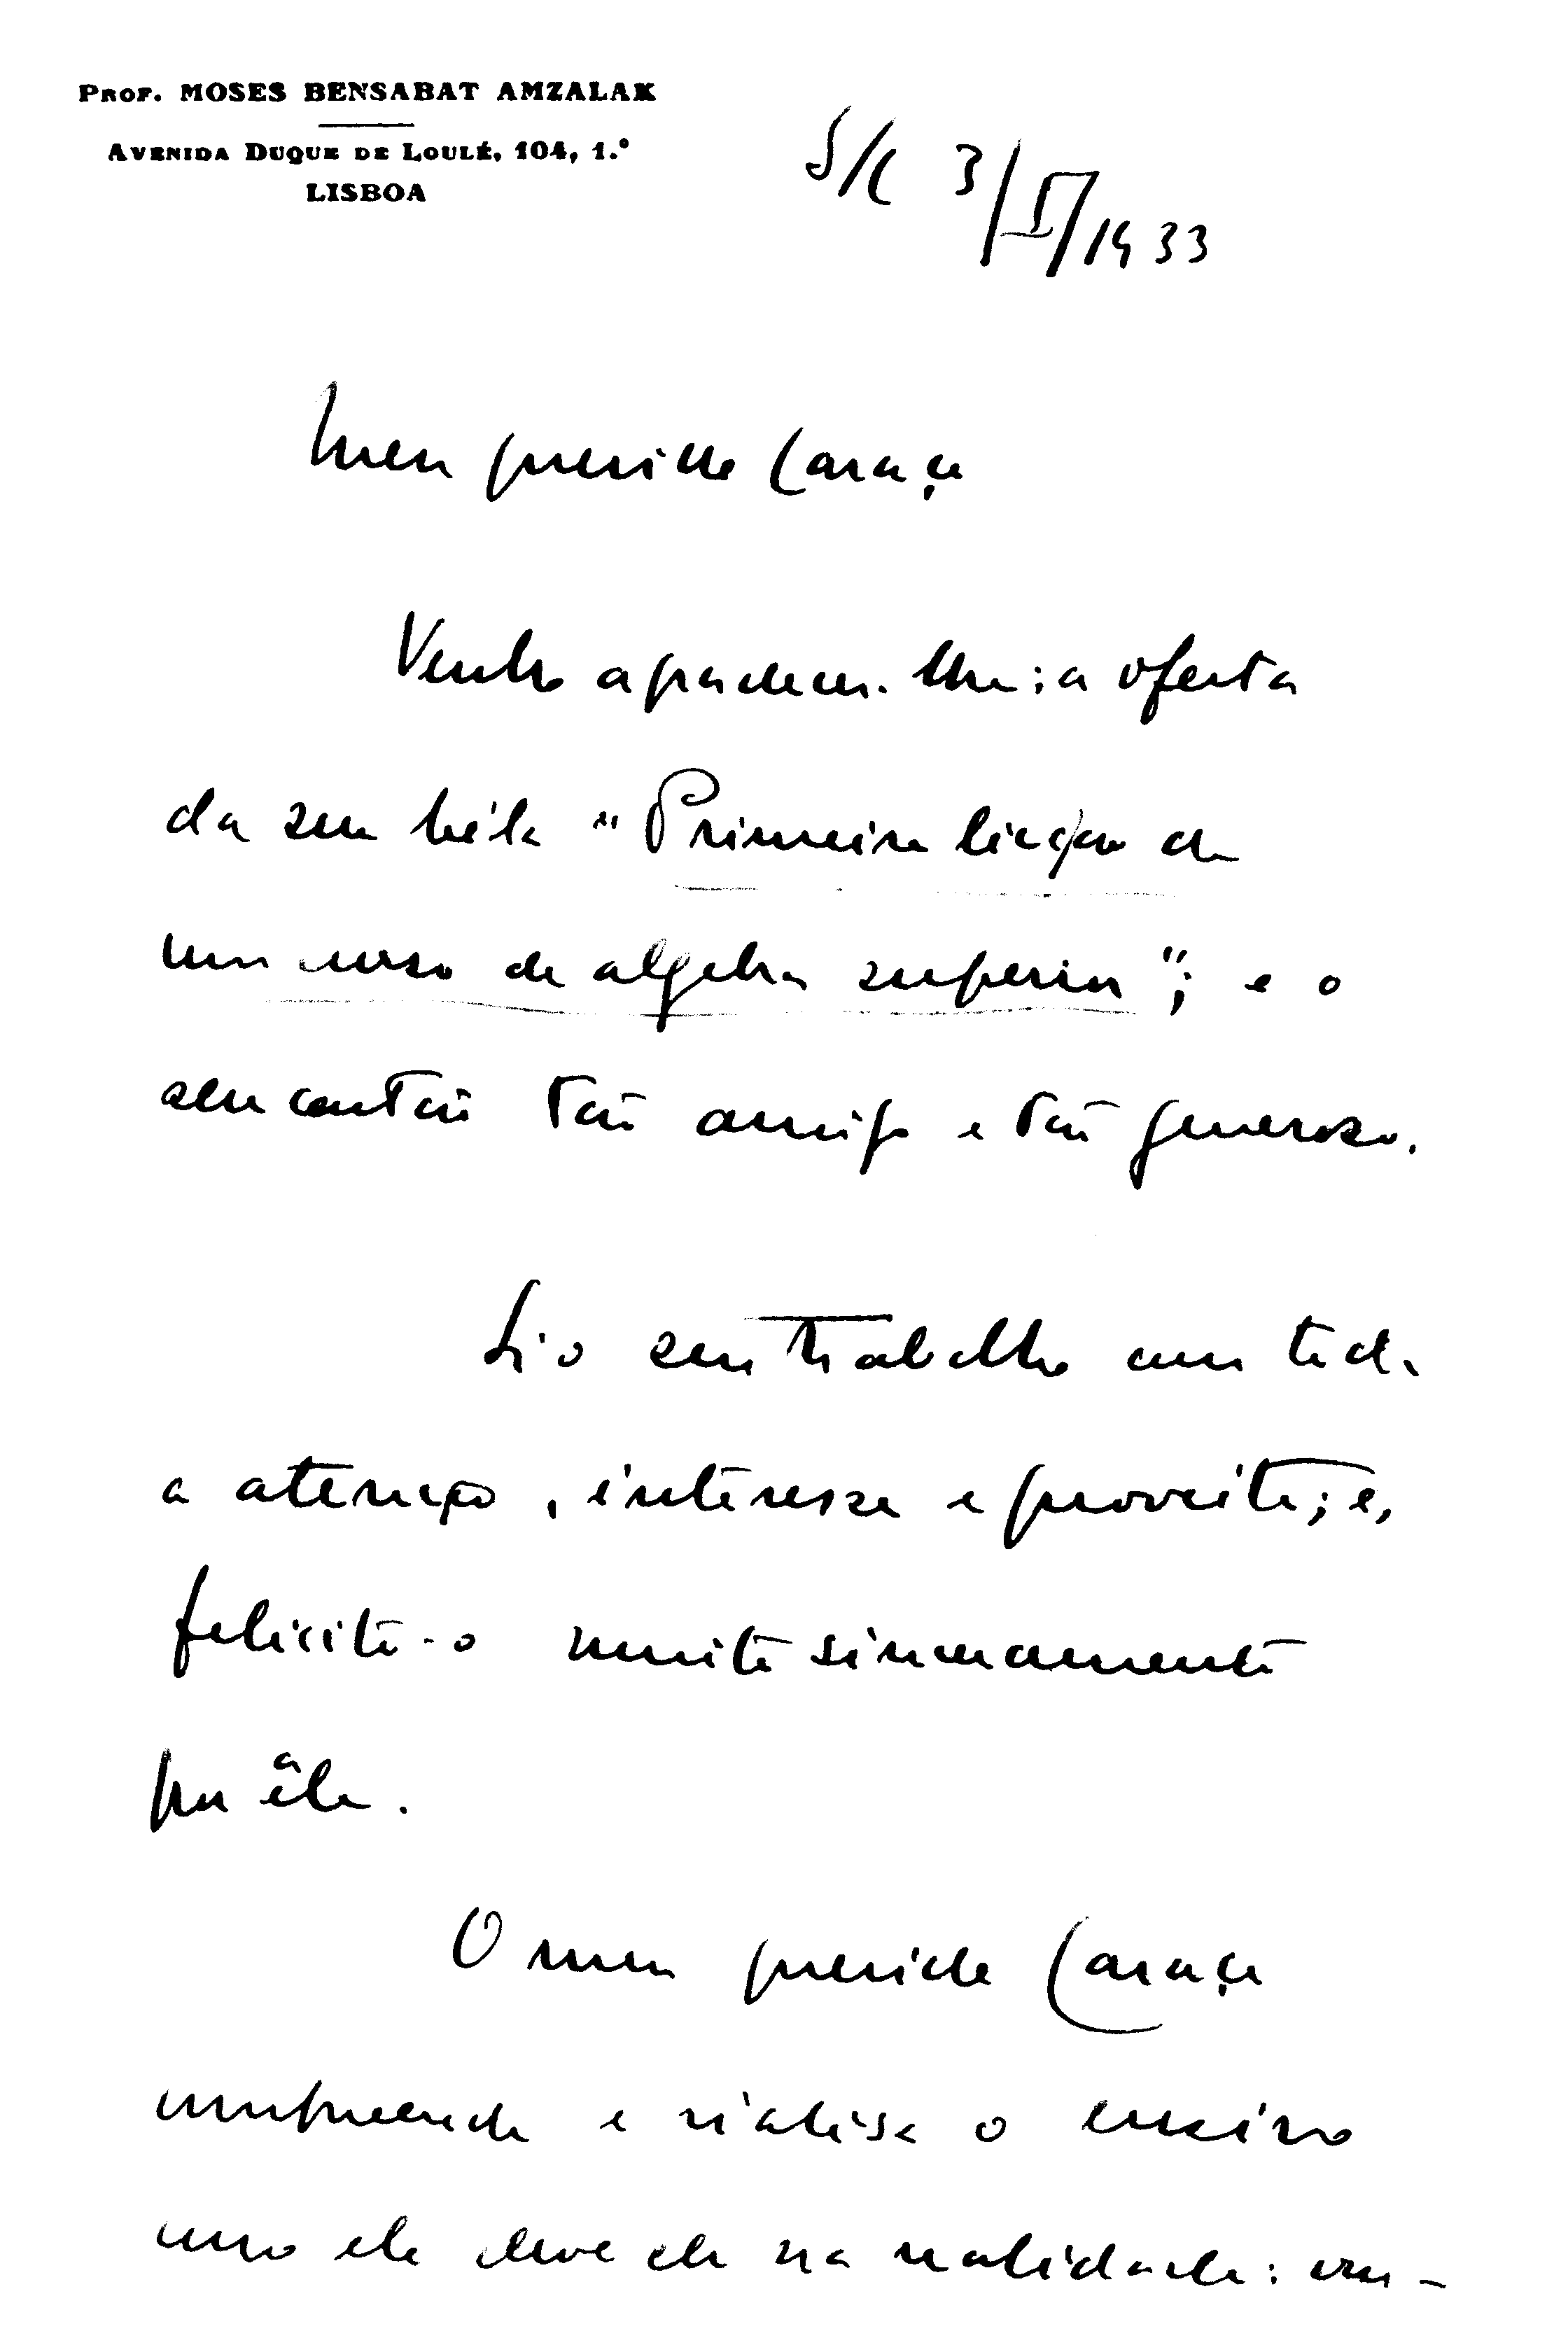 Prof. MOSES BENSABAT AMZALAK
AVENIDA DUQUE DE LOULÉ, 104, 1.º
LISBOA
S/C 3/I/1933
Meu querido Caraça
Venho agradecer-lhe: a oferta
da sua béla "Primeira lição de
um curso de algebra superior"; e o
seu cartão tão amigo e tão generoso.
Li o seu trabalho com toda
a atenção, interesse e proveito; e,
felicito-o muito sinceramente
por êle.
O meu querido Caraça
compreende e rialisa o ensino
como ele deve ser na realidade: